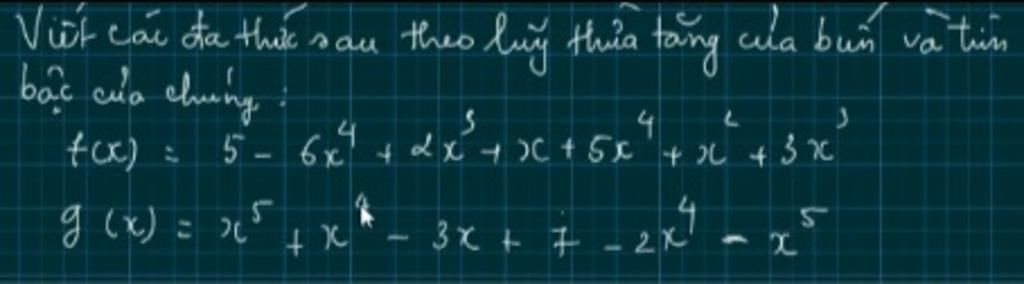 Viết các đa thức sau theo luỹ thừa tăng của biến và tìm
bậc của chúng :
f(x) = 5 - 6x⁴ + 2x³ + x + 5x⁴ + x² + 3x³
g (x) = x⁵ + x⁴ - 3x + 7 - 2x⁴ - x⁵